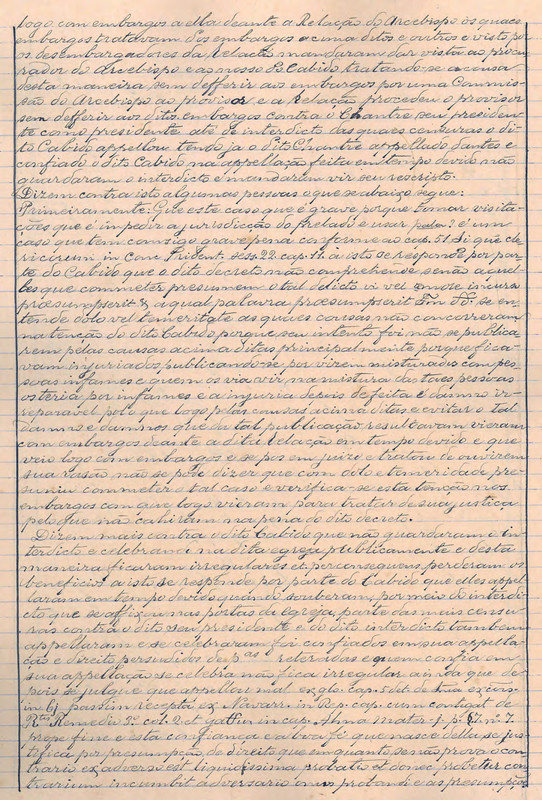 logo com embargos a ella deante a Relação do Arcebispo os quaes
embargos tratavam dos embargos acima ditos e outros e visto por
os desembargadores da Relação mandaram dar vista ao procu-
rador do Arcebispo e ao nosso do Cabido tratando-se a causa
desta maneira, sem defferir aos embargos por uma Commis-
são do Arcebispo ao provisor, e a Relação procedeu o provisor
sem defferir aos ditos embargos contra o Chantre, seu presiden-
te como presidente até de interdicto das quaes censuras o di-
to Cabido appellou tendo ja o dito Chantre appellado dantes e
confiado o dito Cabido na appellação feita em tempo devido não
guardaram o interdicto e mandaram vir seu rescripto.
Dizem contra isto algumas pessoas o que se abaixo segue:
Primeiramente: Que este caso que é grave porque tomar visita-
ções que é impedir a jurisdicção do prelado e usar é um
caso que tem comsigo grave pena conforme ao cap. Si que cle-
ricorum in Conc. Trident. sess. 22. cap. 11. a isto se responde por par-
te do Cabido que o dito decreto não comprehende senão aquel-
les que commetter presumem o tal delicto vi vel incuss
præsumpserit & a qual palavra præsumpserit se en-
tende dolo vel temeritate as quaes cousas não concorreram
na tenção do dito Cabido porque seu intento foi não se publica-
rem pelas causas acima ditas principalmente porque fica-
vam injuriados publicando-se por virem misturados com pes-
soas infames e quem os via vir na mistura das taes pessoas
os teria por infames e a injuria depois de feita é damno ir-
reparavel pelo que logo pelas causas acima ditas e evitar o tal
damno e damnos que da tal publicação resultavam vieram
com embargos deante a dita relação em tempo devido e que
veio logo com embargos e se pos em juizo e tratou de ouvirem
sua rasão não se pode dizer que com dolo e temeridade pre-
sumiu commeter o tal caso e verifica-se esta tenção nos
embargos com que logo vieram para tratar de sua justiça
pelo que não cahiram na pena do dito decreto.
Dizem mais contra o dito Cabido que não guardaram o in-
terdicto e celebraram na dita egreja publicamente e desta
maneira ficaram irregulares et per consequens perderam os
beneficios a isto se responde por parte do Cabido que elles appel-
laram em tempo devido quando souberam, por meio do interdi-
cto que se affixou nas portas da egreja, parte das mais censu-
ras contra o dito seu presidente e do dito interdicto tambem
appellaram e se celebraram foi confiados em sua appella-
ção e direito persuadidos de p.as letteradas e quem confia em
sua appellação se celebra não fica irregular ainda que de-
pois se julgue que appellou mal ex glo. cap. 5 de
in 6 passim recepta ex Navarr. in Rep. cap. cum contigat de
Remedio 2.º col. 2. et in cap. Anna Mater j. p. n.º 7.
prope fine e esta confiança e alva fé que nasce della se jus-
tifica por presumpção de direito que emquanto se não prova o con-
trario ex adverso est liquidissima probatio et donec probetur con-
trarium incumbit adversario onus probandi e as presumpçõe